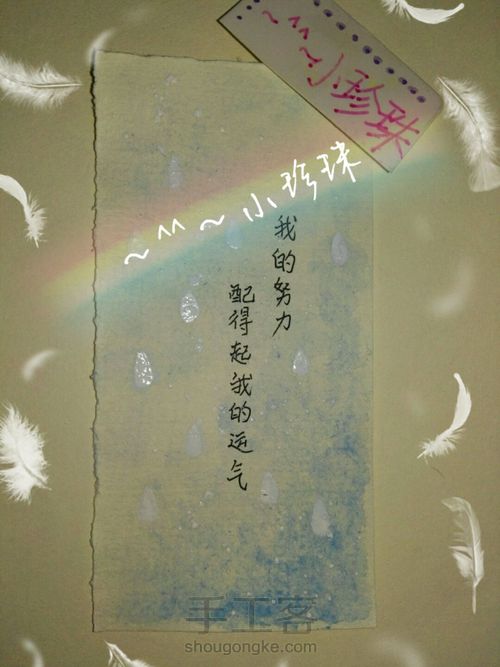 ~^^~小珍珠
~^^~小珍珠
我的努力
配得起我的运气
手工客
shougongke.com